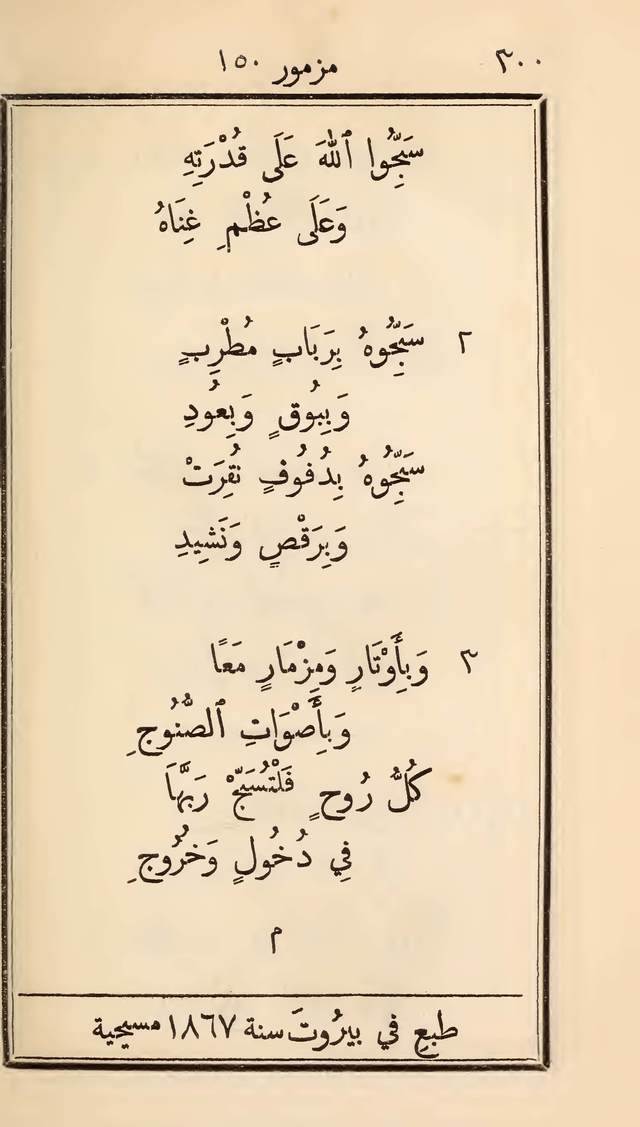 ٣٠٠ مزمور ١٥٠
سَبِّحُوا ٱللهَ عَلَى قُدْرَتِهِ
وَعَلَى عُظْمِ غِنَاهُ
٢ سَبِّحُوهُ بِرَبَابٍ مُطْرِبٍ
وَبِبُوقٍ وَبِعُودِ
سَبِّحُوهُ بِدُفُوفٍ نُقِرَتْ
وَبِرَقْصٍ وَنَشِيدِ
٣ وَبِأَوْتَارٍ وَمِزْمَارٍ مَعًا
وَبِأَصْوَاتِ ٱلصُّنُوجِ
كُلُّ رُوحٍ فَلْتُسَبِّحْ رَبَّهَا
فِي دُخُولٍ وَخُرُوجِ
م
طبع في بيرُوتَ سنة ١٨٦٧ مسيحية